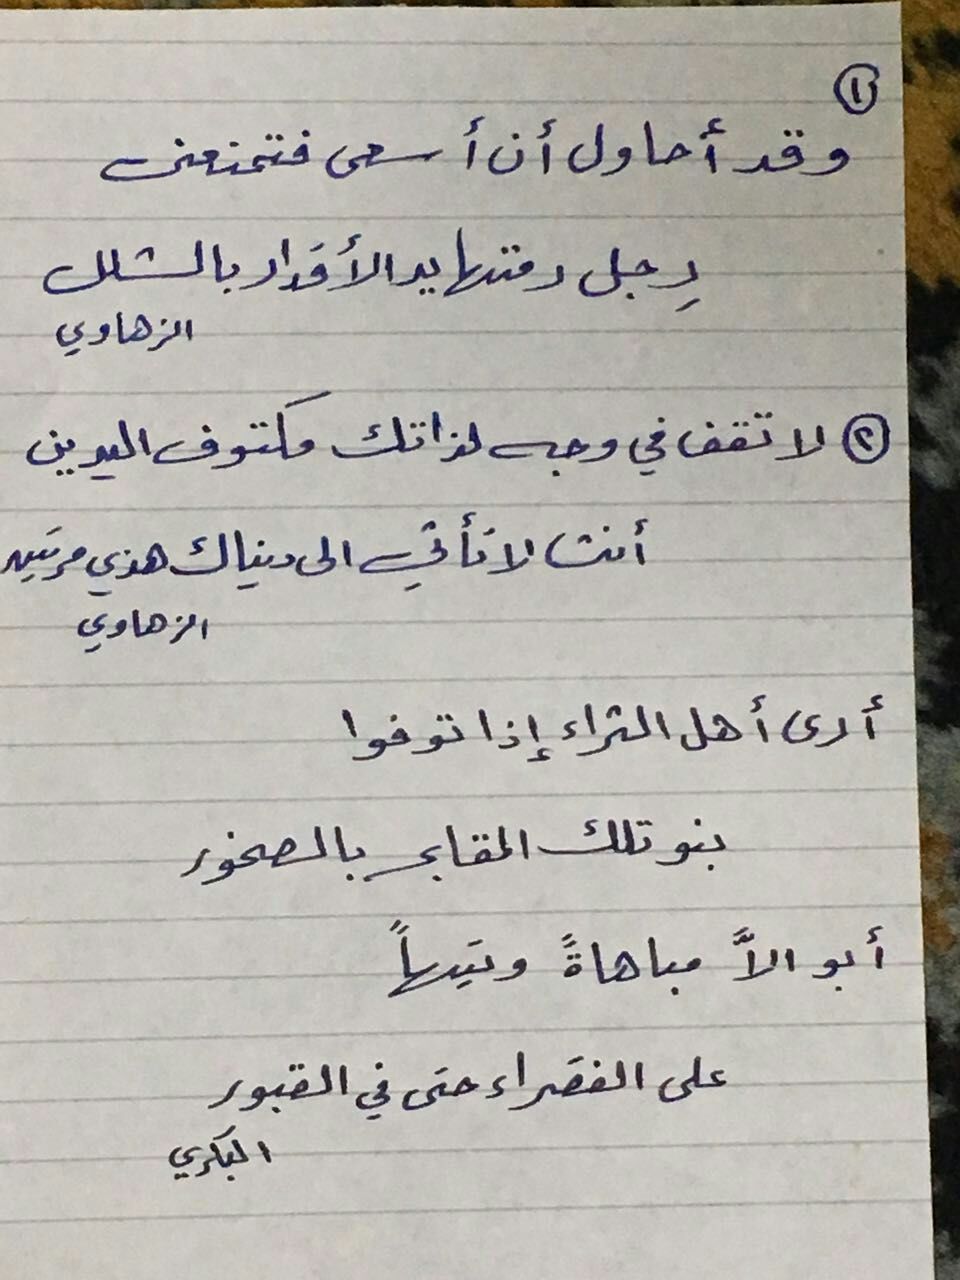 ١
وقد أحاول أن أسعى فتمنعني
رِجل رمتها يد الأقدار بالشلل
الزهاوي
٢ لا تقف في وجه لذاتك مكتوف اليدين
أنت لا تأتي الى دنياك هذي مرتين
الزهاوي
أرى أهل الثراء إذا توفوا
بنو تلك المقابر بالصخور
أبو الاَّ مباهاةً وتيهاً
على الفقراء حتى في القبور
البكري